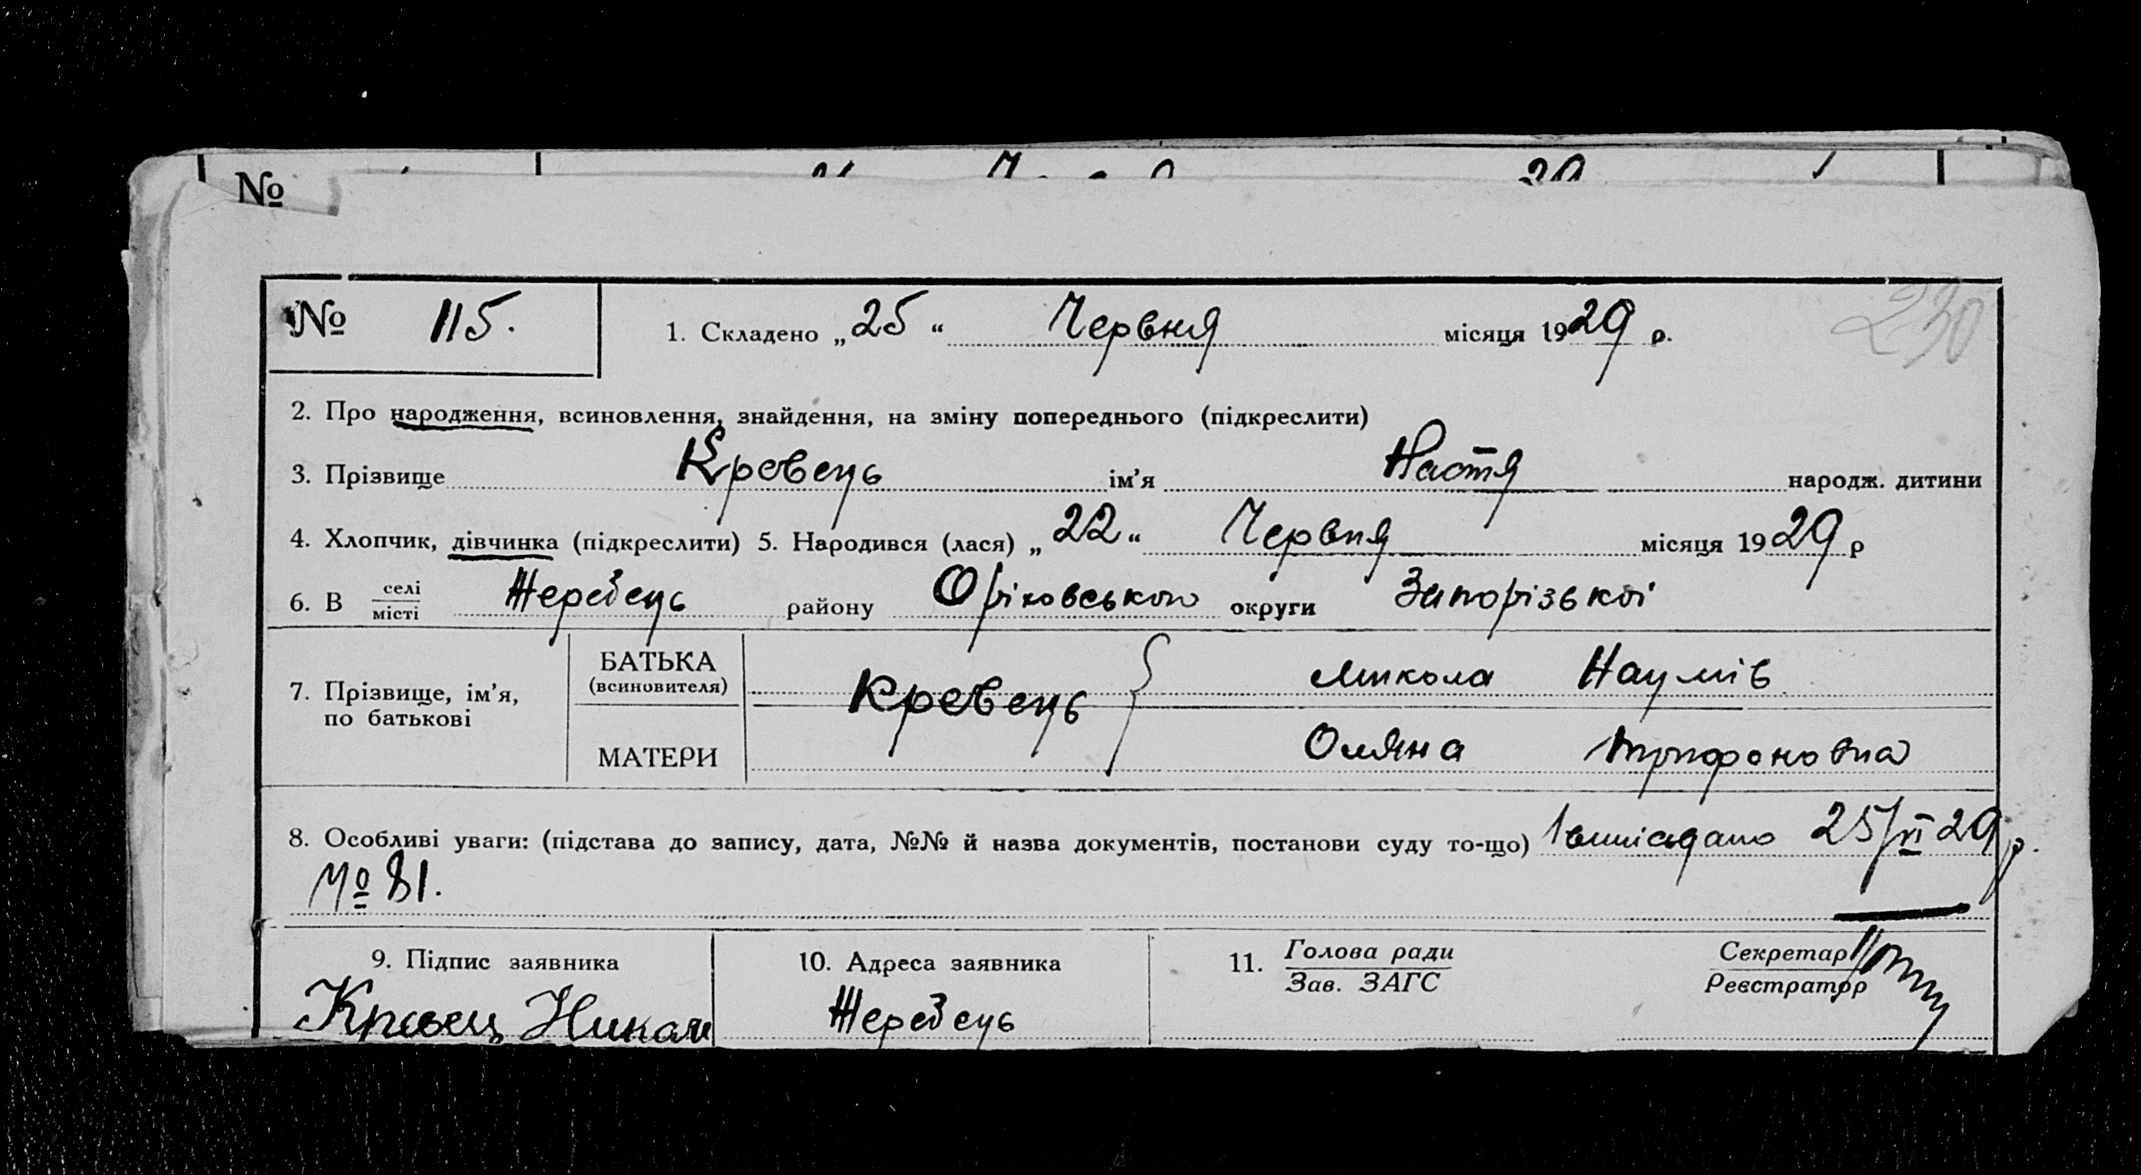 №
№ 115.
1. Складено „25“ Червня місяця 1929 р.
230
2. Про народження, всиновлення, знайдення, на зміну попереднього (підкреслити)
3. Прізвище Кревець ім’я Настя народж. дитини
4. Хлопчик, дівчинка (підкреслити) 5. Народився (лася) „22“ Червня місяця 1929 р
6. В селі місті Жеребець району Оріховського округи Запорізької
7. Прізвище, ім’я, по батькові
БАТЬКА (всиновителя) Кревець } Микола Наумів
МАТЕРИ Оляна Трифоновна
8. Особливі уваги: (підстава до запису, дата, №№ й назва документів, постанови суду то-що) 25/VI 29 р.
№ 81.
9. Підпис заявника 10. Адреса заявника 11. Голова ради Зав. ЗАГС Секретар Реєстратор
Кревец Жеребець